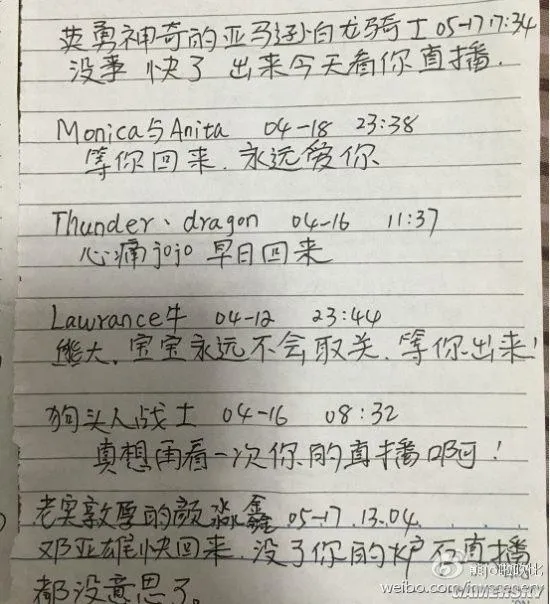 英勇神奇的亚马逊白龙骑士 05-17 17:34
没事 快了 出来今天看你直播.
Monica与Anita 04-18 23:38
等你回来.永远爱你
Thunder、dragon 04-16 11:37
心痛jojo 早日回来
Lawrance牛 04-12 23:44
熊大.宝宝永远不会取关.等你出来!
狗头人战士 04-16 08:32
真想再看一次你的直播啊!
老实敦厚的颜淼鑫 05-17 13.04
邓亚雄快回来.没了你的炉石直播
都没意思了。
weibo.com/
GAMERSKY